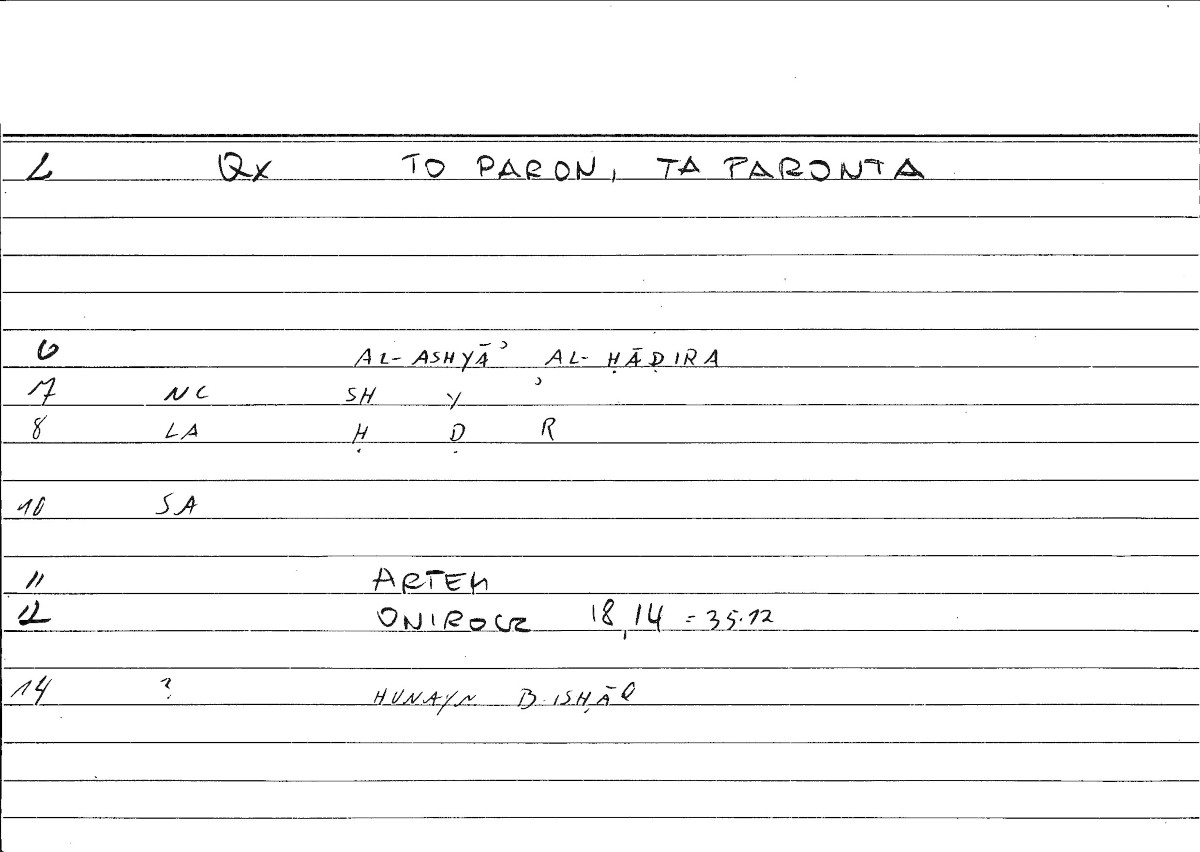 2 Qx TO PARON, TA PARONTA
6 AL-ASHYĀʾ AL-ḤĀḌIRA
7 NC SH Y ʾ
8 LA Ḥ Ḍ R
10 SA
11 ARTEM
12 ONIROCR 18,14 = 35.12
14 ? HUNAYN B. ISḤĀQ